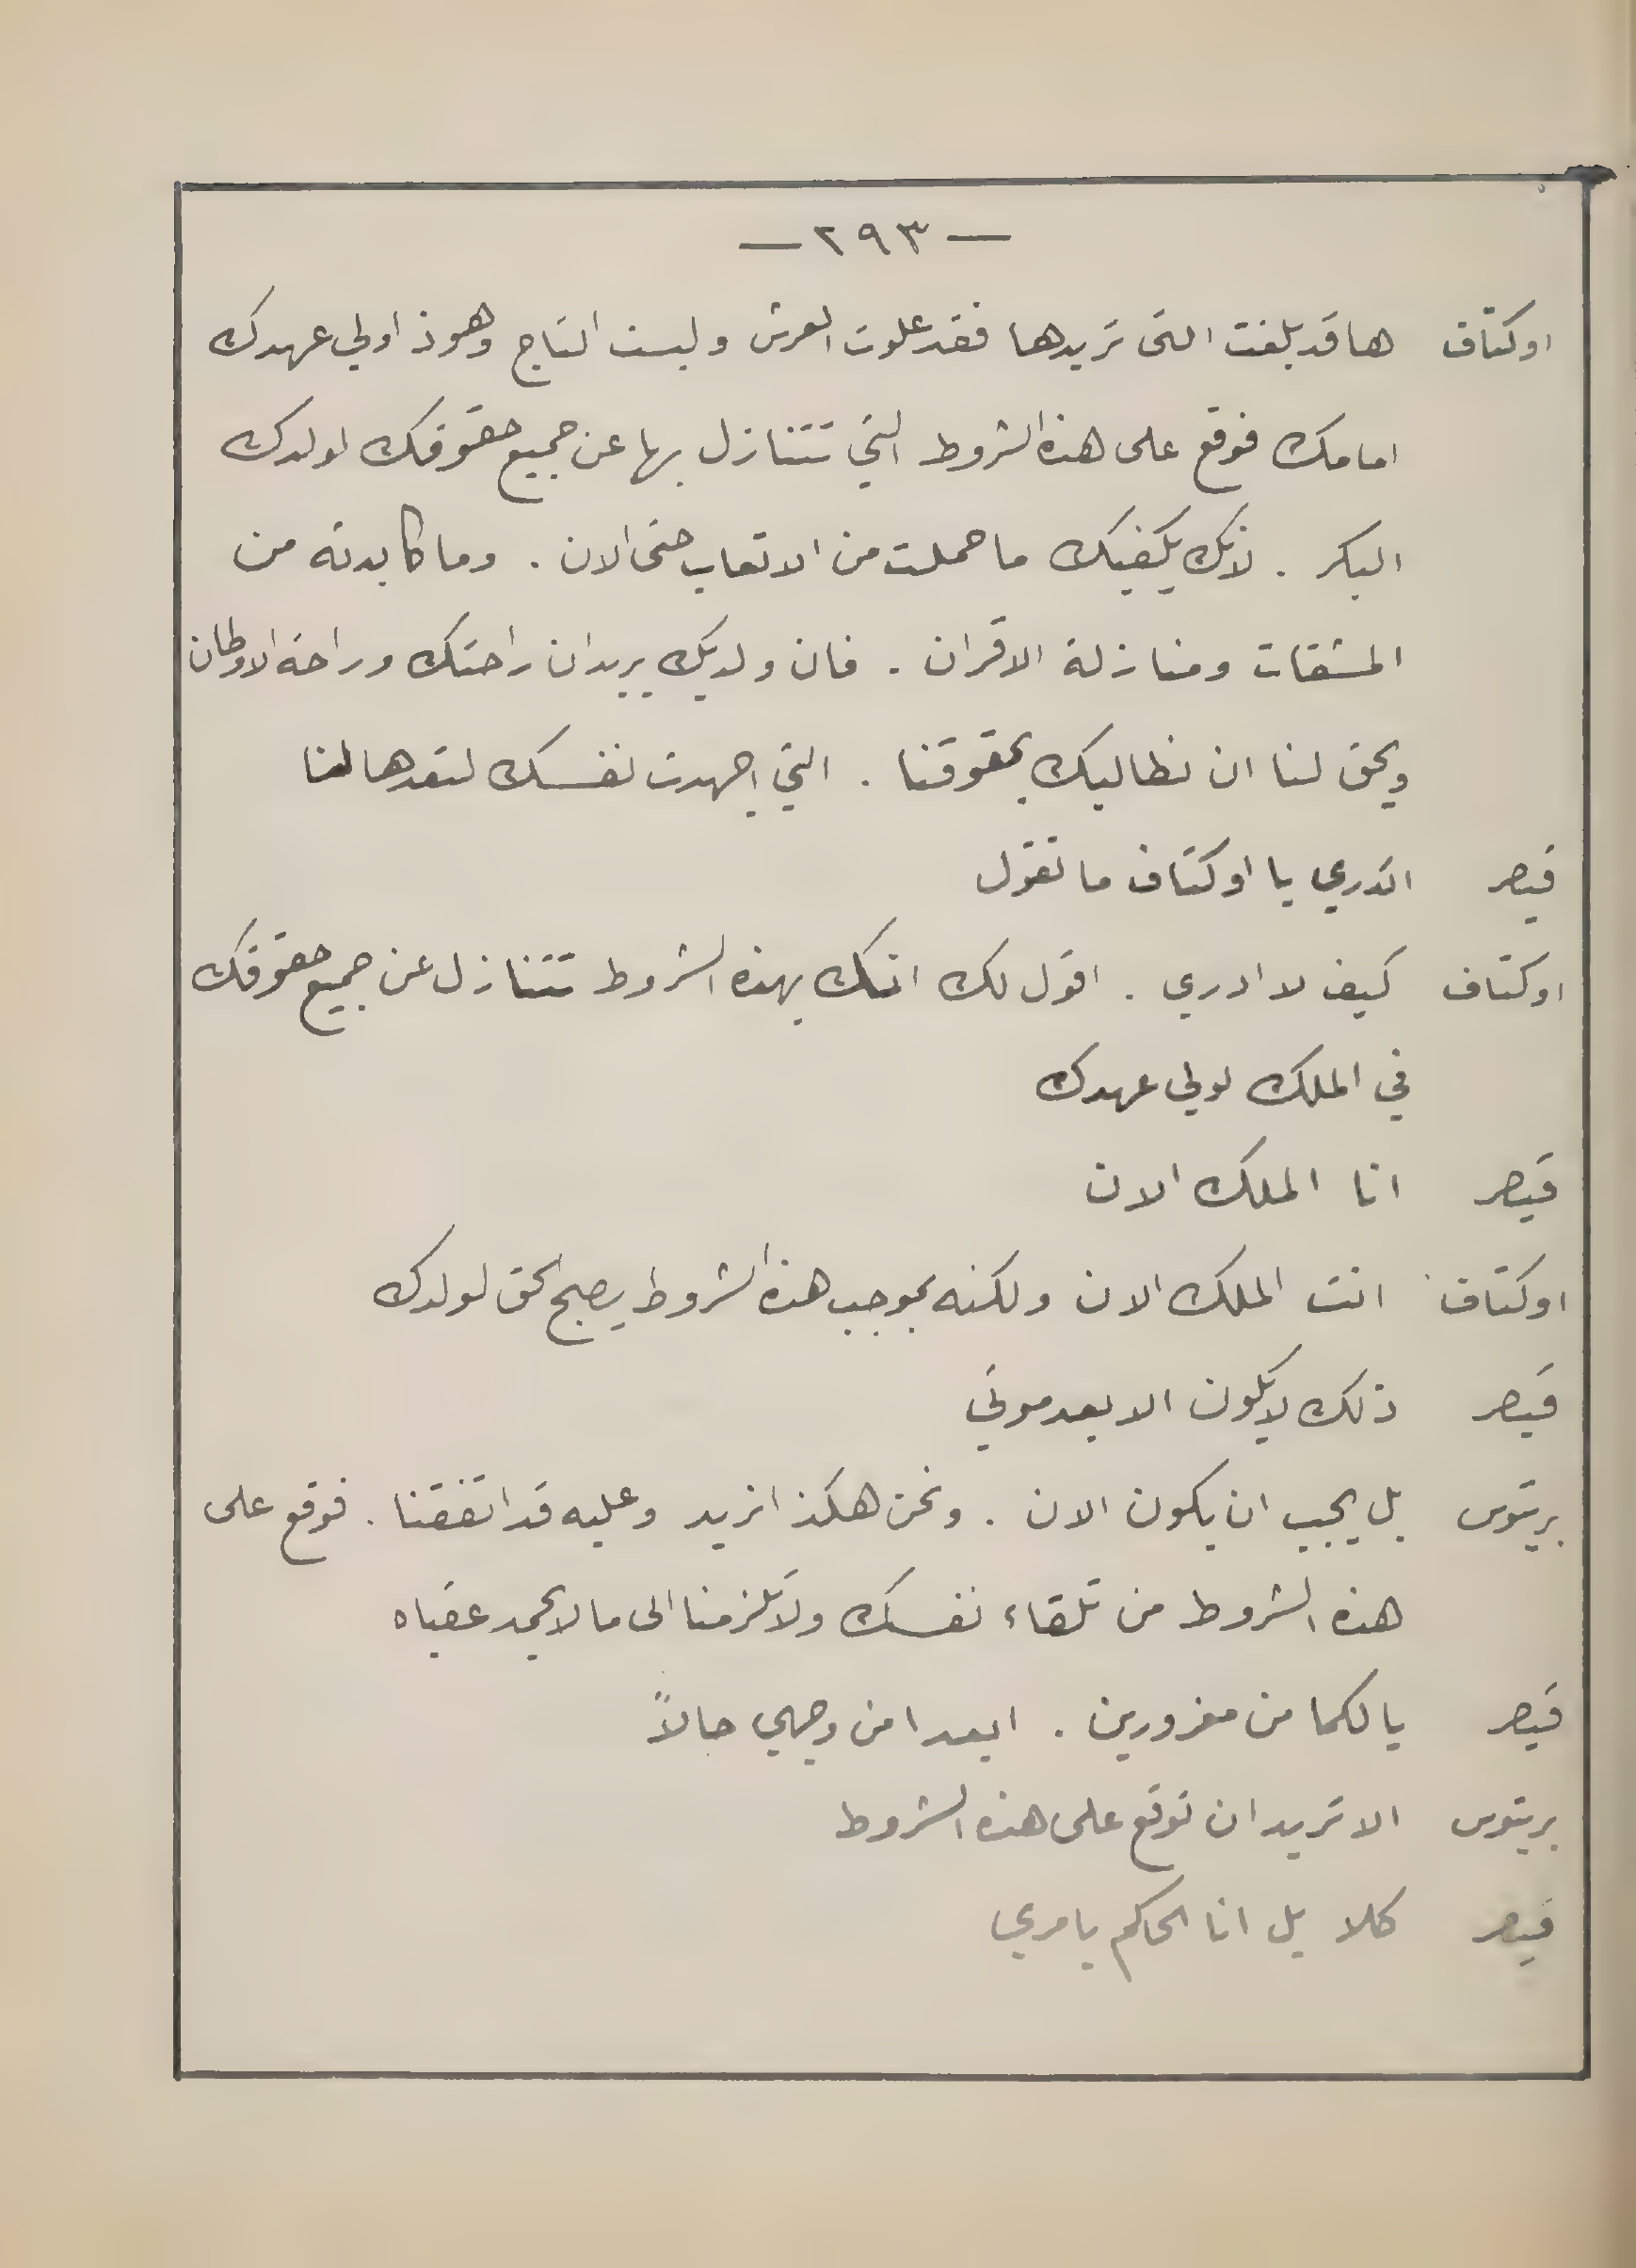 — ٢٩٣ —
اوكتاف هاقد بلغت التى تريدها فقد علوت العرش ولبست التاج وهوذا ولي عهدك
امامك فوقع على هذه الشروط التي تتنازل بها عن جميع حقوقك لولدك
البكر . لانك يكفيك ما حملت من الاتعاب حتى الان . وما كابدته من
المشقات ومنازلة الاقران . فان ولديك يريدان راحتك وراحة الاوطان
ويحق لنا ان نطالبك بحقوقنا . التي اجهدت نفسك لتعدها لنا
قيصر اتدري يا اوكتاف ما تقول
اوكتاف كيف لا ادري . اقول لك انك بهذه الشروط تتنازل عن جميع حقوقك
في الملك لولي عهدك
قيصر انا الملك الان
اوكتاف انت الملك الان ولكنه بموجب هذه الشروط يصبح الحق لولدك
قيصر ذلك لا يكون الا بعد موتي
بريتوس بل يجب ان يكون الان . ونحن هكذا نريد وعليه قد اتفقنا . فوقع على
هذه الشروط من تلقاء نفسك ولا تلزمنا الى ما لا يحمد عقباه
قيصر يا لكما من مغرورين . ابعدا من وجهي حالاً
بريتوس الا تريد ان توقع على هذه الشروط
قيصر كلا بل انا الحاكم بامري